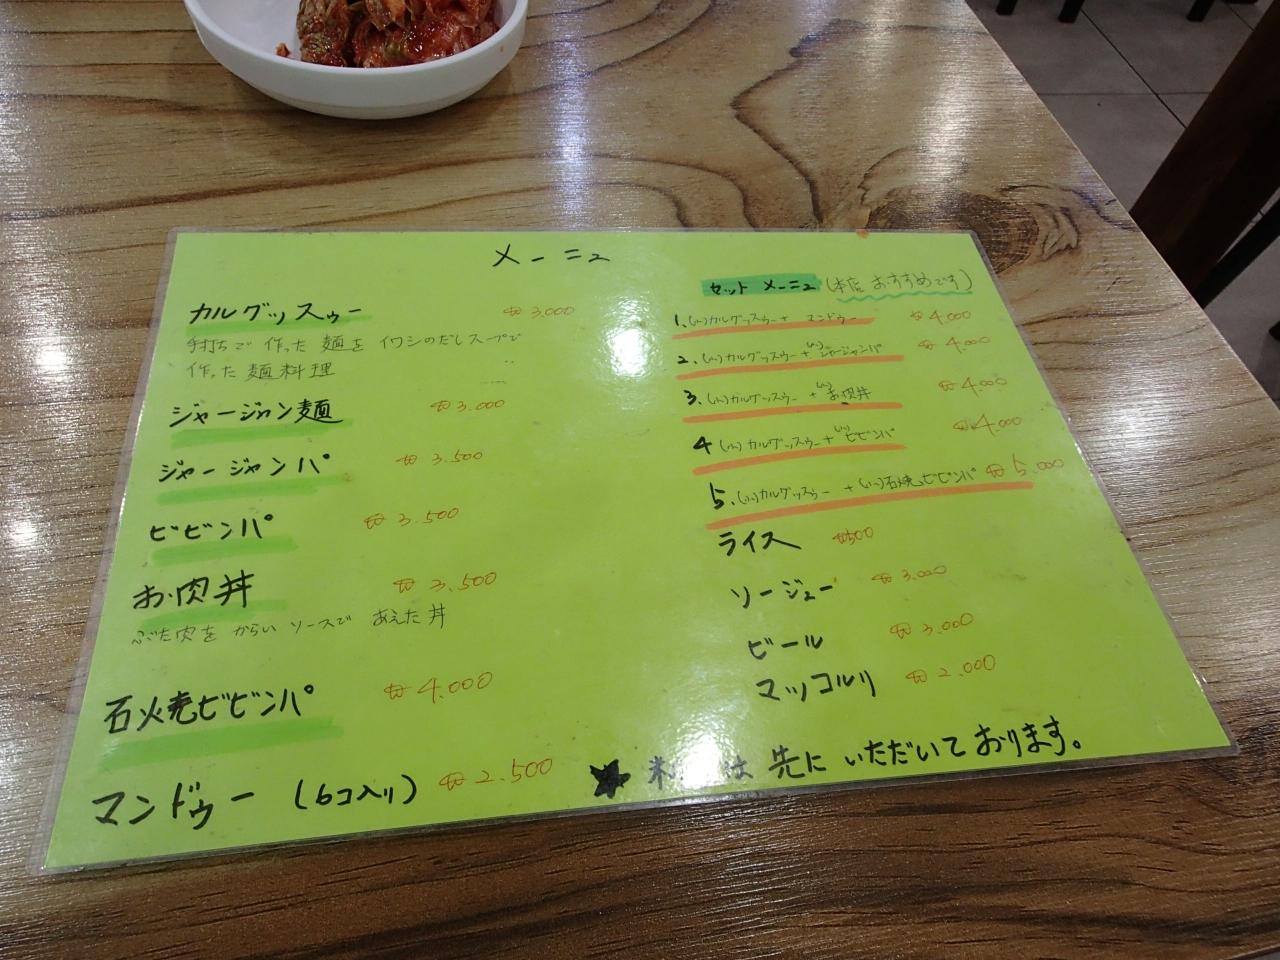 メーニュ
カルグッスゥー ₩3,000
手打ちで 作った 麺を イワシのだしスープで
作った 麺料理
ジャージャン麺 ₩3.000
ジャージャンパ ₩3,500
ビビンパ ₩3,500
お肉丼 ₩3,500
ぶた肉を からい ソースで あえた丼
石火焼ビビンパ ₩4.000
マンドゥー (6コ入り) ₩2.500
セット メーニュ (本店 おすすめです)
1. (小)カルグッスゥー + マンドゥー ₩4,000
2. (小)カルグッスゥー + (小)ジャージャンパ ₩4.000
3. (小)カルグッスゥー + (小)お肉丼 ₩4.000
4 (小)カルグッスゥー + (小)ビビンパ ₩4.000
5. (小)カルグッスゥー + (小)石焼ビビンパ ₩5.000
ライス ₩500
ソージュー ₩3.000
ビール ₩3.000
マッコルリ ₩2.000
★ は 先に いただいて おります。